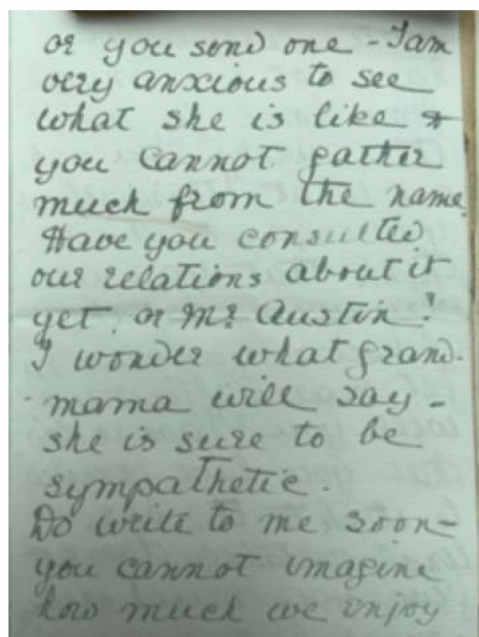 or you send one - I am
very anxious to see
what she is like &
you cannot gather
much from the name.
Have you consulted
our relations about it
yet, or Mr. Austin!
I wonder what grand-
mama will say -
she is sure to be
sympathetic.
Do write to me soon -
you cannot imagine
how much we enjoy